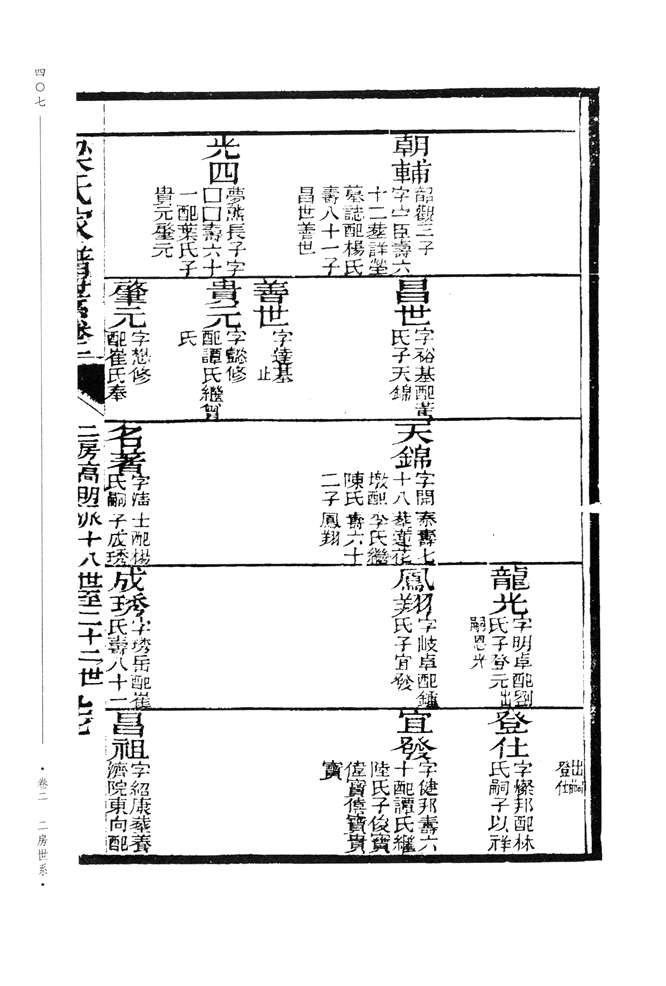 朝輔
韶觀三子
字宁臣壽六
十二葬詳塋
墓誌配楊氏
壽八十一子
昌世善世
光四
夢熊長子字
囗囗壽六十
一配葉氏子
貴元肇元
昌世
字裕基配黃
氏子天錦
善世
字達基
止
貴元
字懿修
配譚氏繼何
氏
肇元
字懋修
配崔氏奉
天錦
字開泰壽七
十八葬蓮花
墩配李氏繼
陳氏壽六十
二子鳳翔
名著
字清士配楊
氏嗣子成琇
龍光
字明卓配劉
氏子登元出
嗣恩光
鳳翔
字岐卓配鍾
氏子宜發
成琇
字琇岳配崔
氏壽八十二
出
登仕
登仕
字燦邦配林
氏嗣子以祥
宜發
字健邦壽六
十配譚氏繼
陸氏子俊寶
偉寶信寶貴
寶
昌祖
字紹康葬養
濟院東向配
梁氏家譜世系卷二
二房高明派十八世至二十二世
四〇七
·卷二 二房世系·